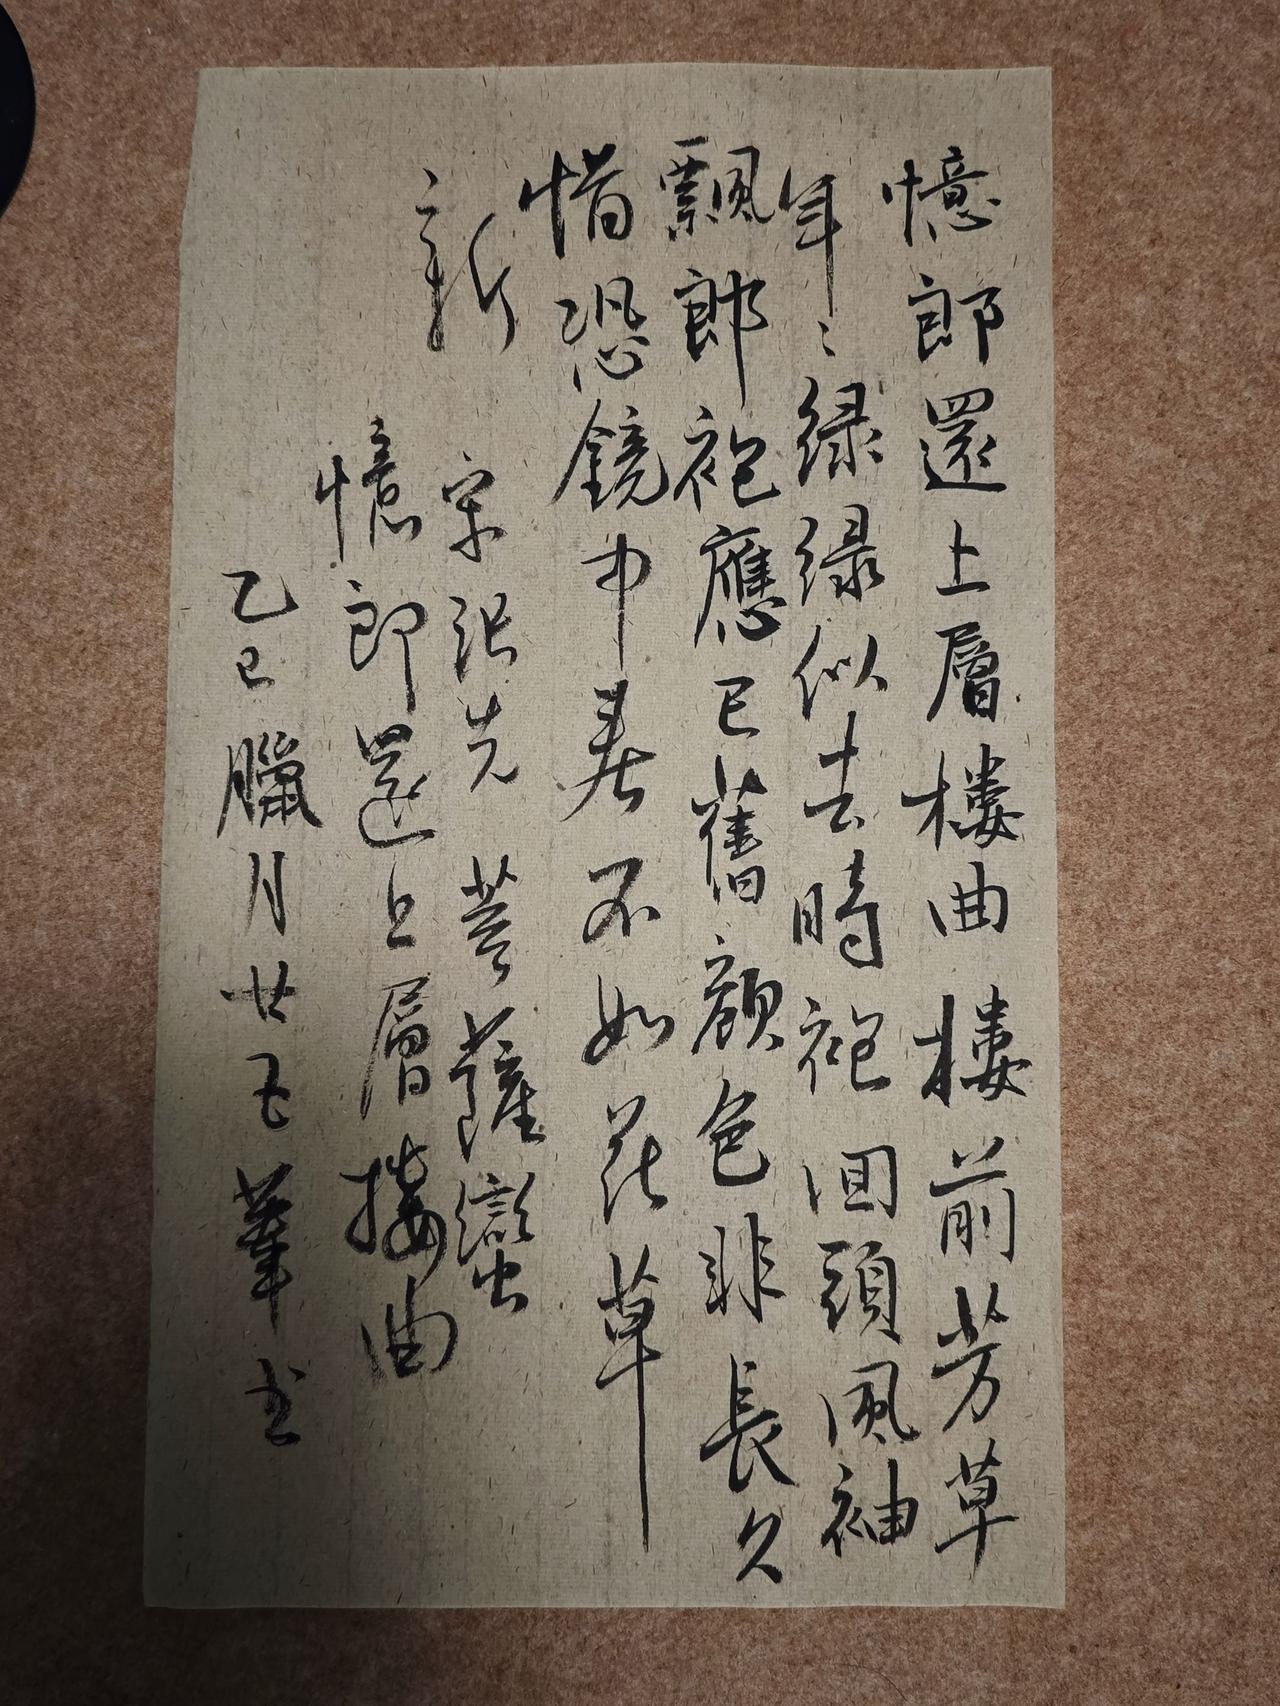 憶郎還上層樓曲樓前芳草
年〻緑緑似去時袍回頭風袖
飄郎袍應已舊顔色非長久
惜恐鏡中春不如花草
新
宋張先 菩薩蠻
憶郎還上層樓曲
乙巳臘月廿五 書